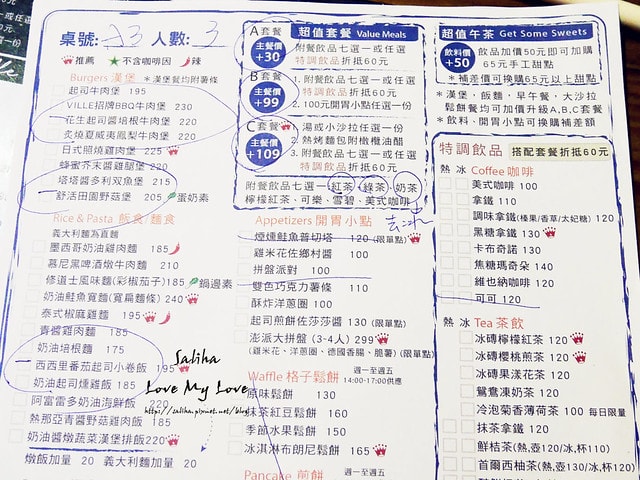 桌號: A3 人數: 3
推薦 ★不含咖啡因 辣
Burgers 漢堡 *漢堡餐均附薯條
起司牛肉堡 195
VILLE招牌BBQ牛肉堡 230
花生起司醬培根牛肉堡 220
炙燒夏威夷鳳梨牛肉堡 220
日式照燒雞肉堡 225
蜂蜜芥末醬雞腿堡 220
塔塔醬多利双魚堡 215
舒活田園野菇堡 205 蛋奶素
Rice & Pasta 飯食/麵食
義大利麵為直麵
墨西哥奶油雞肉麵 185
慕尼黑啤酒燉牛肉麵 210
修道士風味麵(彩椒茄子)185 鍋邊素
奶油鮭魚寬麵(寬扁麵條)240
泰式椒麻雞麵 195
青醬雞肉麵 185
奶油培根麵 175
西西里番茄起司小卷飯 195
奶油起司燻雞飯 185
阿富雷多奶油海鮮飯 220
熱那亞青醬野菇雞肉飯 185
奶油醬燉蔬菜漢堡排飯220
燉飯加量 20 義大利麵加量 20
A套餐
主餐價
+30
B套餐
主餐價
+99
C套餐
主餐價
+109
超值套餐 Value Meals
附餐飲品七選一或任選
特調飲品折抵60元
1. 附餐飲品七選一或任選
特調飲品折抵60元
2. 100元開胃小點任選一份
1. 湯或小沙拉任選一份
2. 熱烤麵包附橄欖油醋
3. 附餐飲品七選一或任選
特調飲品折抵60元
附餐飲品七選一 紅茶·綠茶·奶茶
檸檬紅茶·可樂·雪碧·美式咖啡
去冰
Appetizers 開胃小點
煙燻鮭魚普切塔 120 (限量點)
雞米花佐鄉村醬 100
拼盤派對 100
雙色巧克力薯條 110
酥炸洋蔥圈 100
起司煎餅佐莎莎醬 130 (限單點)
澎派大拼盤 (3-4人) 299
(雞米花、洋蔥圈、德國香腸、脆薯) (限單點)
Waffle 格子鬆餅 週一至週五
14:00-17:00供應
原味鬆餅 130
抹茶紅豆鬆餅 160
季節水果鬆餅 150
冰淇淋布朗尼鬆餅 165
Pancake 煎餅 週一至週五
超值午茶 Get Some Sweets
飲料價
+50
飲品加價50元即可加購
65元手工甜點
*補差價可換購65元以上甜點
*漢堡,飯麵,早午餐,大沙拉
鬆餅餐均可加價升級A,B,C套餐
*飲料、開胃小點可換購補差額
特調飲品 搭配套餐折抵60元
熱 冰 Coffee 咖啡
美式咖啡 100
拿鐵 110
調味拿鐵(榛果/香草/太妃糖) 120
黑糖拿鐵 130
卡布奇諾 130
焦糖瑪奇朵 140
維也納咖啡 120
可可 120
熱 冰 Tea 茶飲
冰磚檸檬紅茶 120
冰磚櫻桃煎茶 120
冰磚果漾花茶 120
鴛鴦凍奶茶 120
冷泡菊香薄荷茶 100 每日限量
抹茶拿鐵 120
鮮桔茶(熱,壺120/冰,杯110)
首爾西柚茶(熱,壺130/冰,杯120)
Saliha
Love My Love
http://saliha.pixnet.net/blog